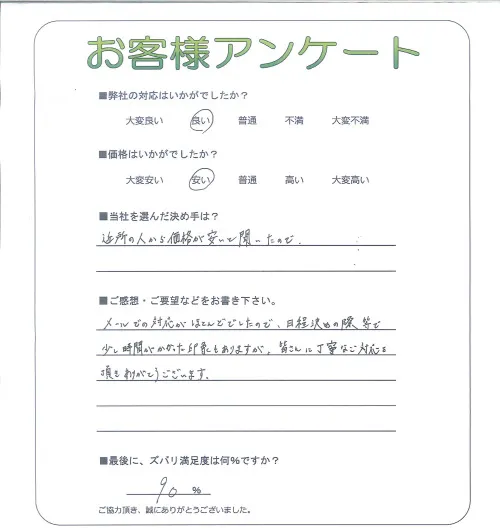 お客様アンケート
■弊社の対応はいかがでしたか？
大変良い 良い 普通 不満 大変不満
■価格はいかがでしたか？
大変安い 安い 普通 高い 大変高い
■当社を選んだ決め手は？
近所の人から価格が安いと聞いたので、
■ご感想・ご要望などをお書き下さい。
メールでの対応がほとんどでしたので、日程決めの際等で
少し時間がかかった印象もありますが、皆さんに丁寧なご対応を
頂きありがとうございます。
■最後に、ズバリ満足度は何％ですか？
90 ％
ご協力頂き、誠にありがとうございました。